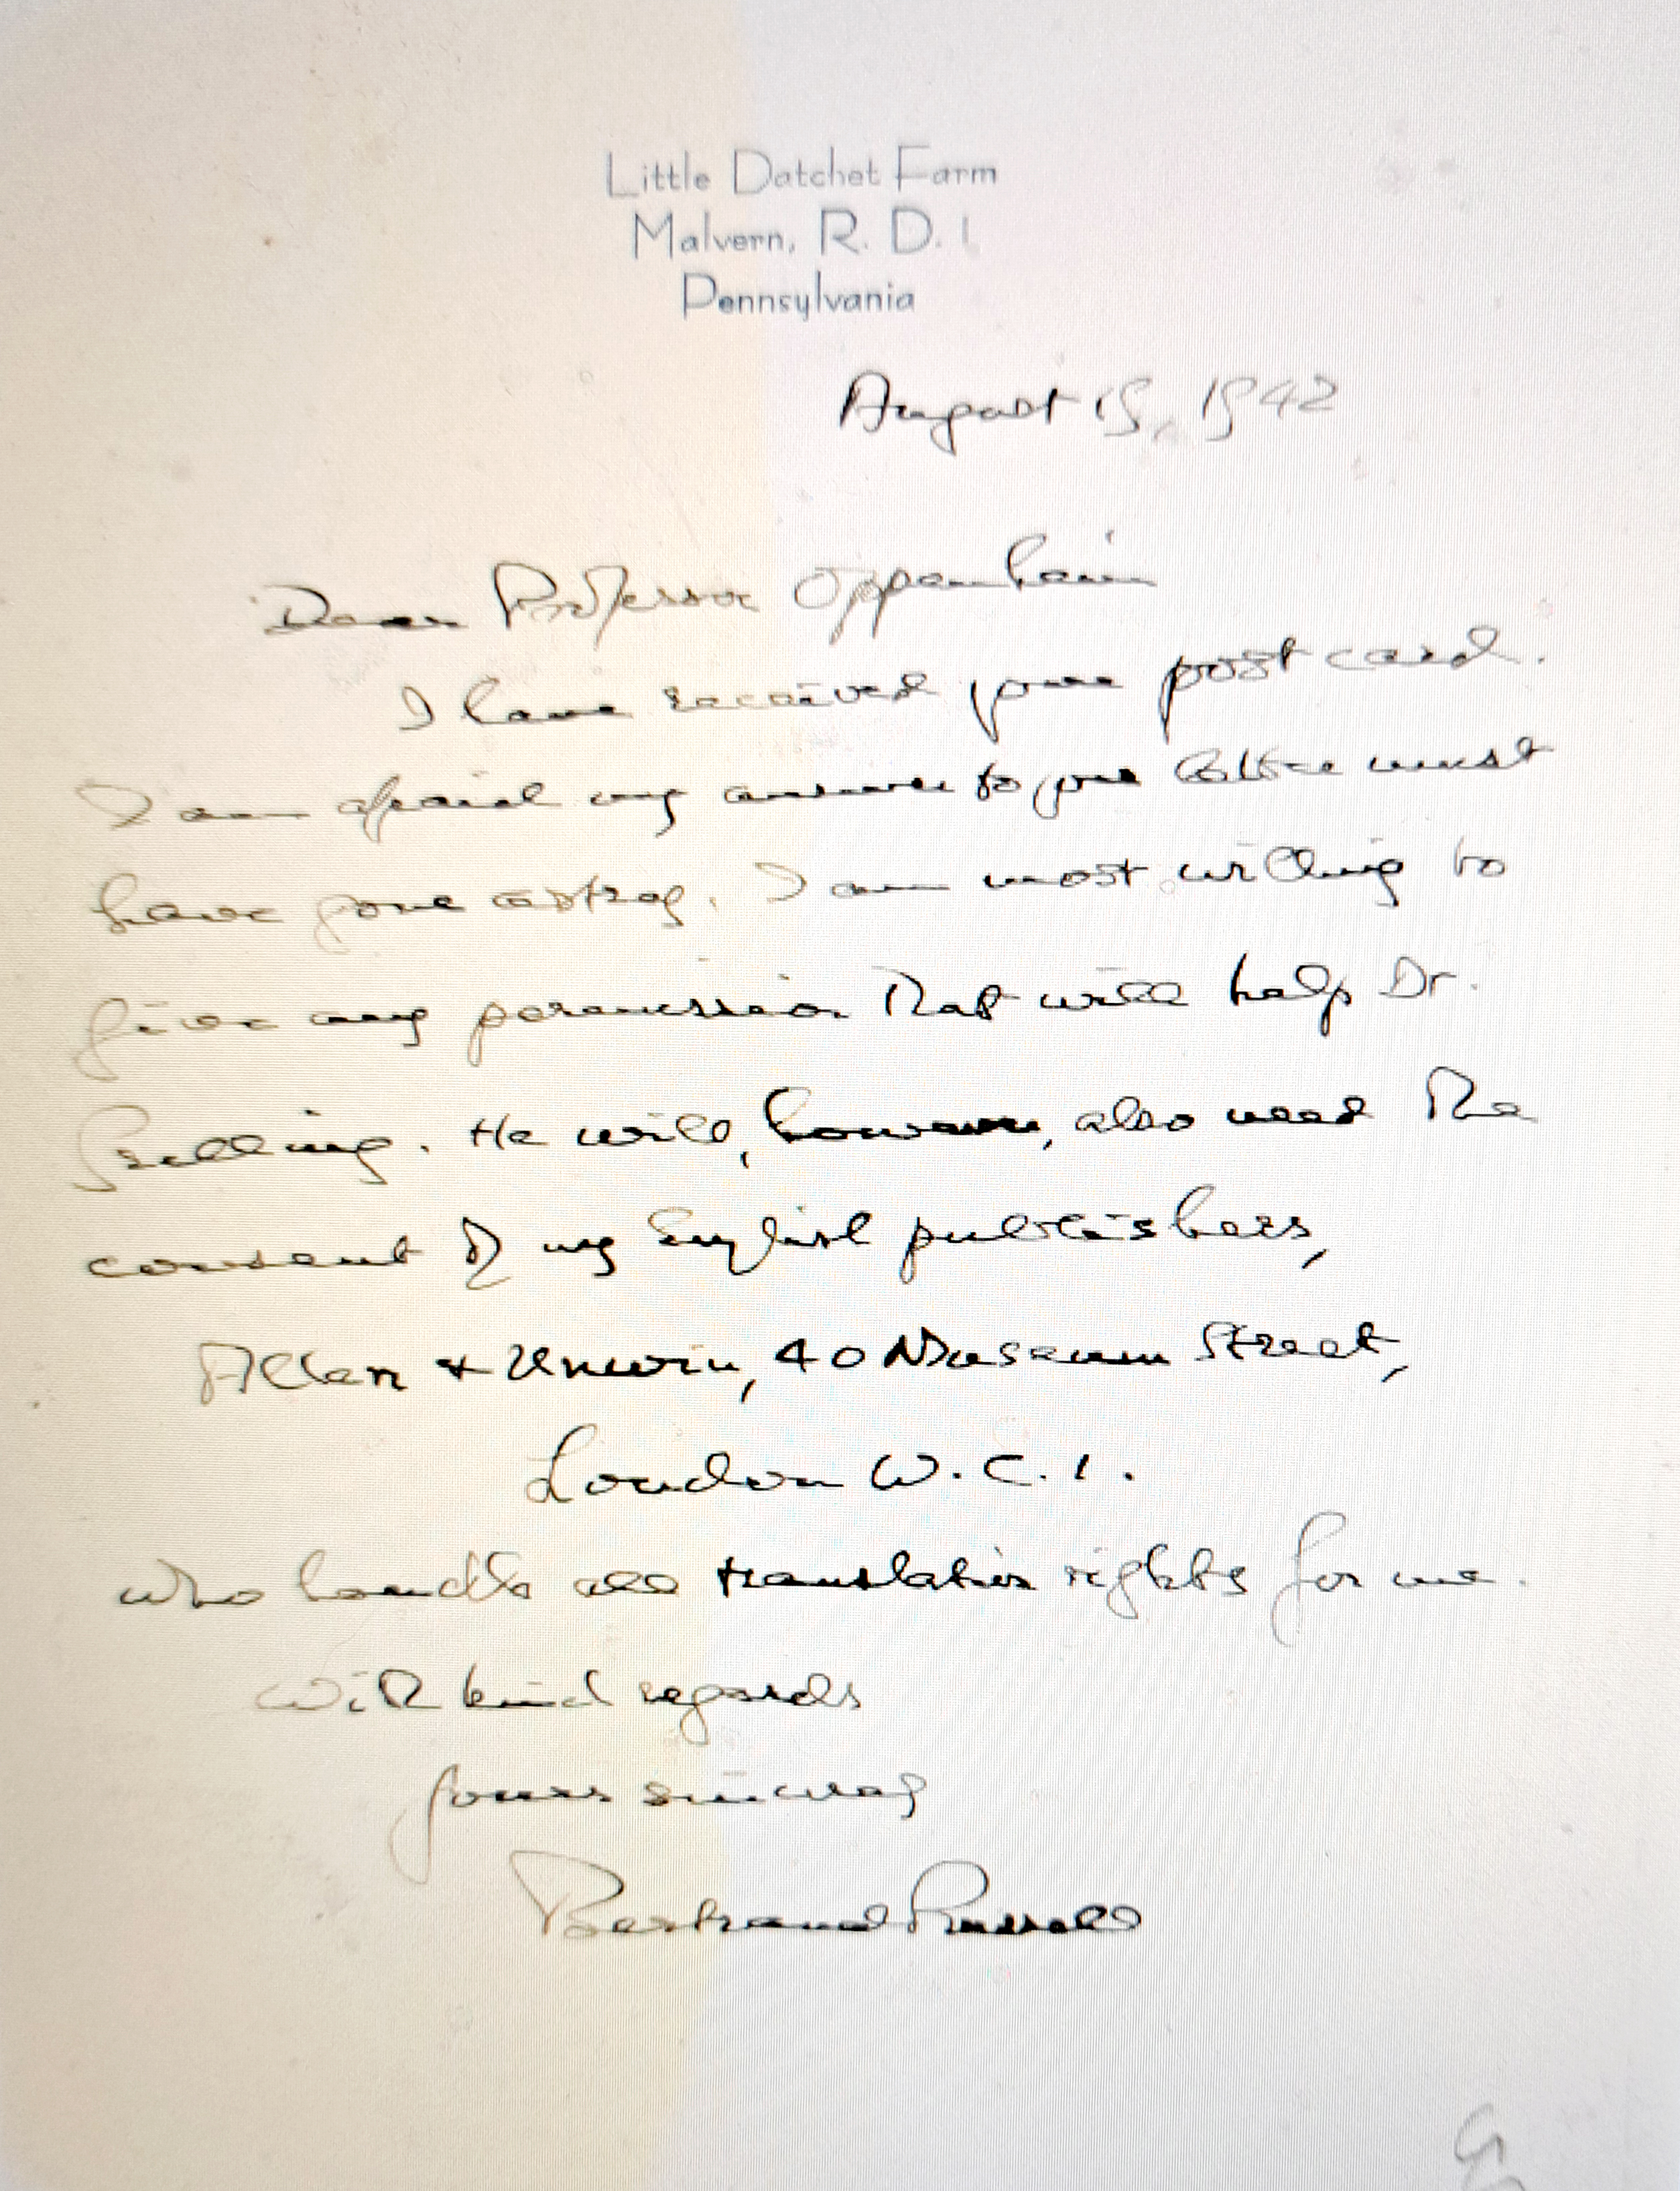 Little Datchet Farm
Malvern, R. D. 1
Pennsylvania
August 19, 1942
Dear Professor Oppenheim
I have received your post card.
I am afraid my answer to your letter must
have gone astray. I am most willing to
give any permission that will help Dr.
Grelling. He will, however, also need the
consent of my English publishers,
Allen & Unwin, 40 Museum Street,
London W.C.1.
who handle all translation rights for me.
With kind regards
yours sincerely
Bertrand Russell